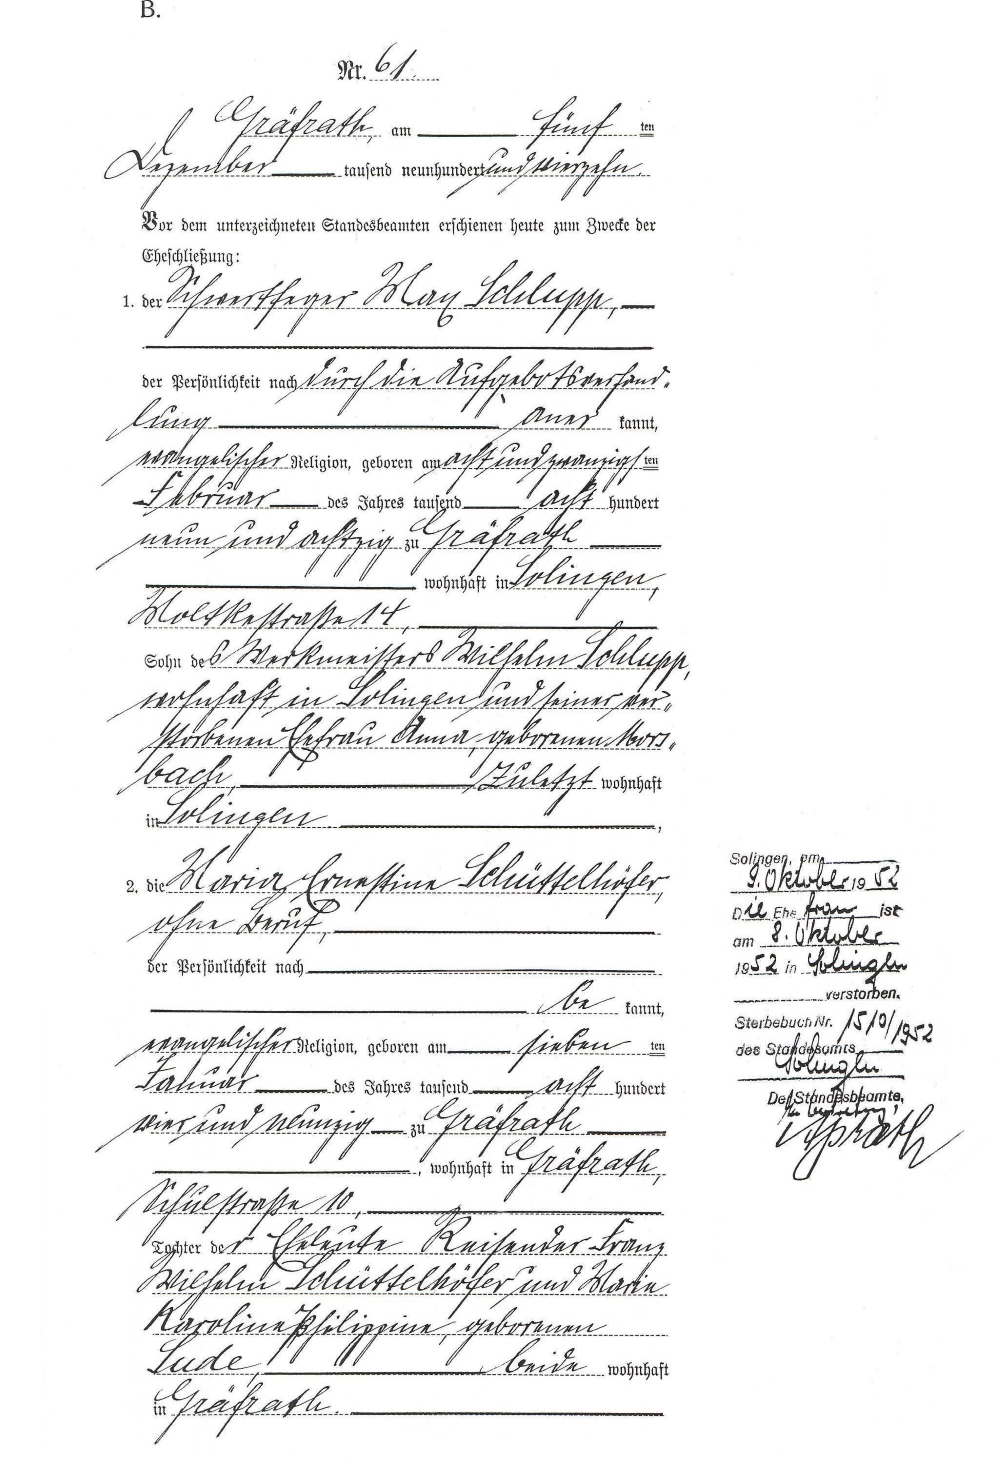 B.
Nr. 61.
Gräfrath, am fünf ten
Dezember tausend neunhundert und vierzehn.
Vor dem unterzeichneten Standesbeamten erschienen heute zum Zwecke der
Eheschließung:
1. der Schwertfeger Max Schlupp,
der Persönlichkeit nach durch die Aufgebotsverhand-
lung aner kannt,
evangelischer Religion, geboren am acht und zwanzigs ten
Februar des Jahres tausend acht hundert
neun und achtzig zu Gräfrath
, wohnhaft in Solingen,
Moltkestraße 14,
Sohn des Werkmeisters Wilhelm Schlupp,
wohnhaft in Solingen und seiner ver-
storbenen Ehefrau Anna, geborenen Mors-
bach, zuletzt wohnhaft
in Solingen,
2. die Maria Ernestine Schüttelhöfer,
ohne Beruf,
der Persönlichkeit nach
be kannt,
evangelischer Religion, geboren am sieben ten
Januar des Jahres tausend acht hundert
vier und neunzig zu Gräfrath
, wohnhaft in Gräfrath,
Schulstraße 10,
Tochter der Eheleute Reisender Franz
Wilhelm Schüttelhöfer und Maria
Karoline Philippine, geborenen
Lude, beide wohnhaft
in Gräfrath.
Solingen, am
9. Oktober 1952
Die Ehefrau ist
am 8. Oktober
1952 in Solingen
verstorben.
Sterbebuch Nr. 1510/1952
des Standesamts
Solingen
Der Standesbeamte,